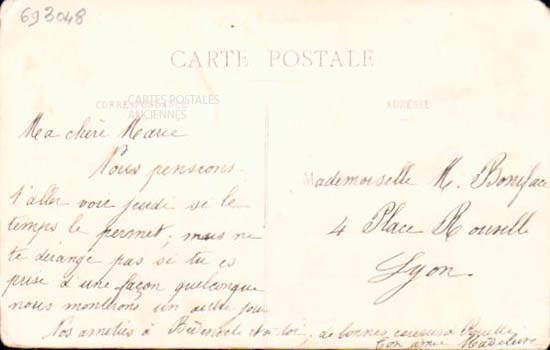 693048
CARTE POSTALE
CORRESPONDANCE
CARTES POSTALES
ANCIENNES
ADRESSE
Ma chère Marie
Nous pensions
t'aller voir jeudi si le
temps le permet; mais ne
te dérange pas si tu es
prise d'une façon quelconque
nous monterons un autre jour
Nos amitiés à et à toi, de bonnes caresses à
Ton amie Madeleine
Mademoiselle M. Boniface
4 Place Rouville
Lyon.